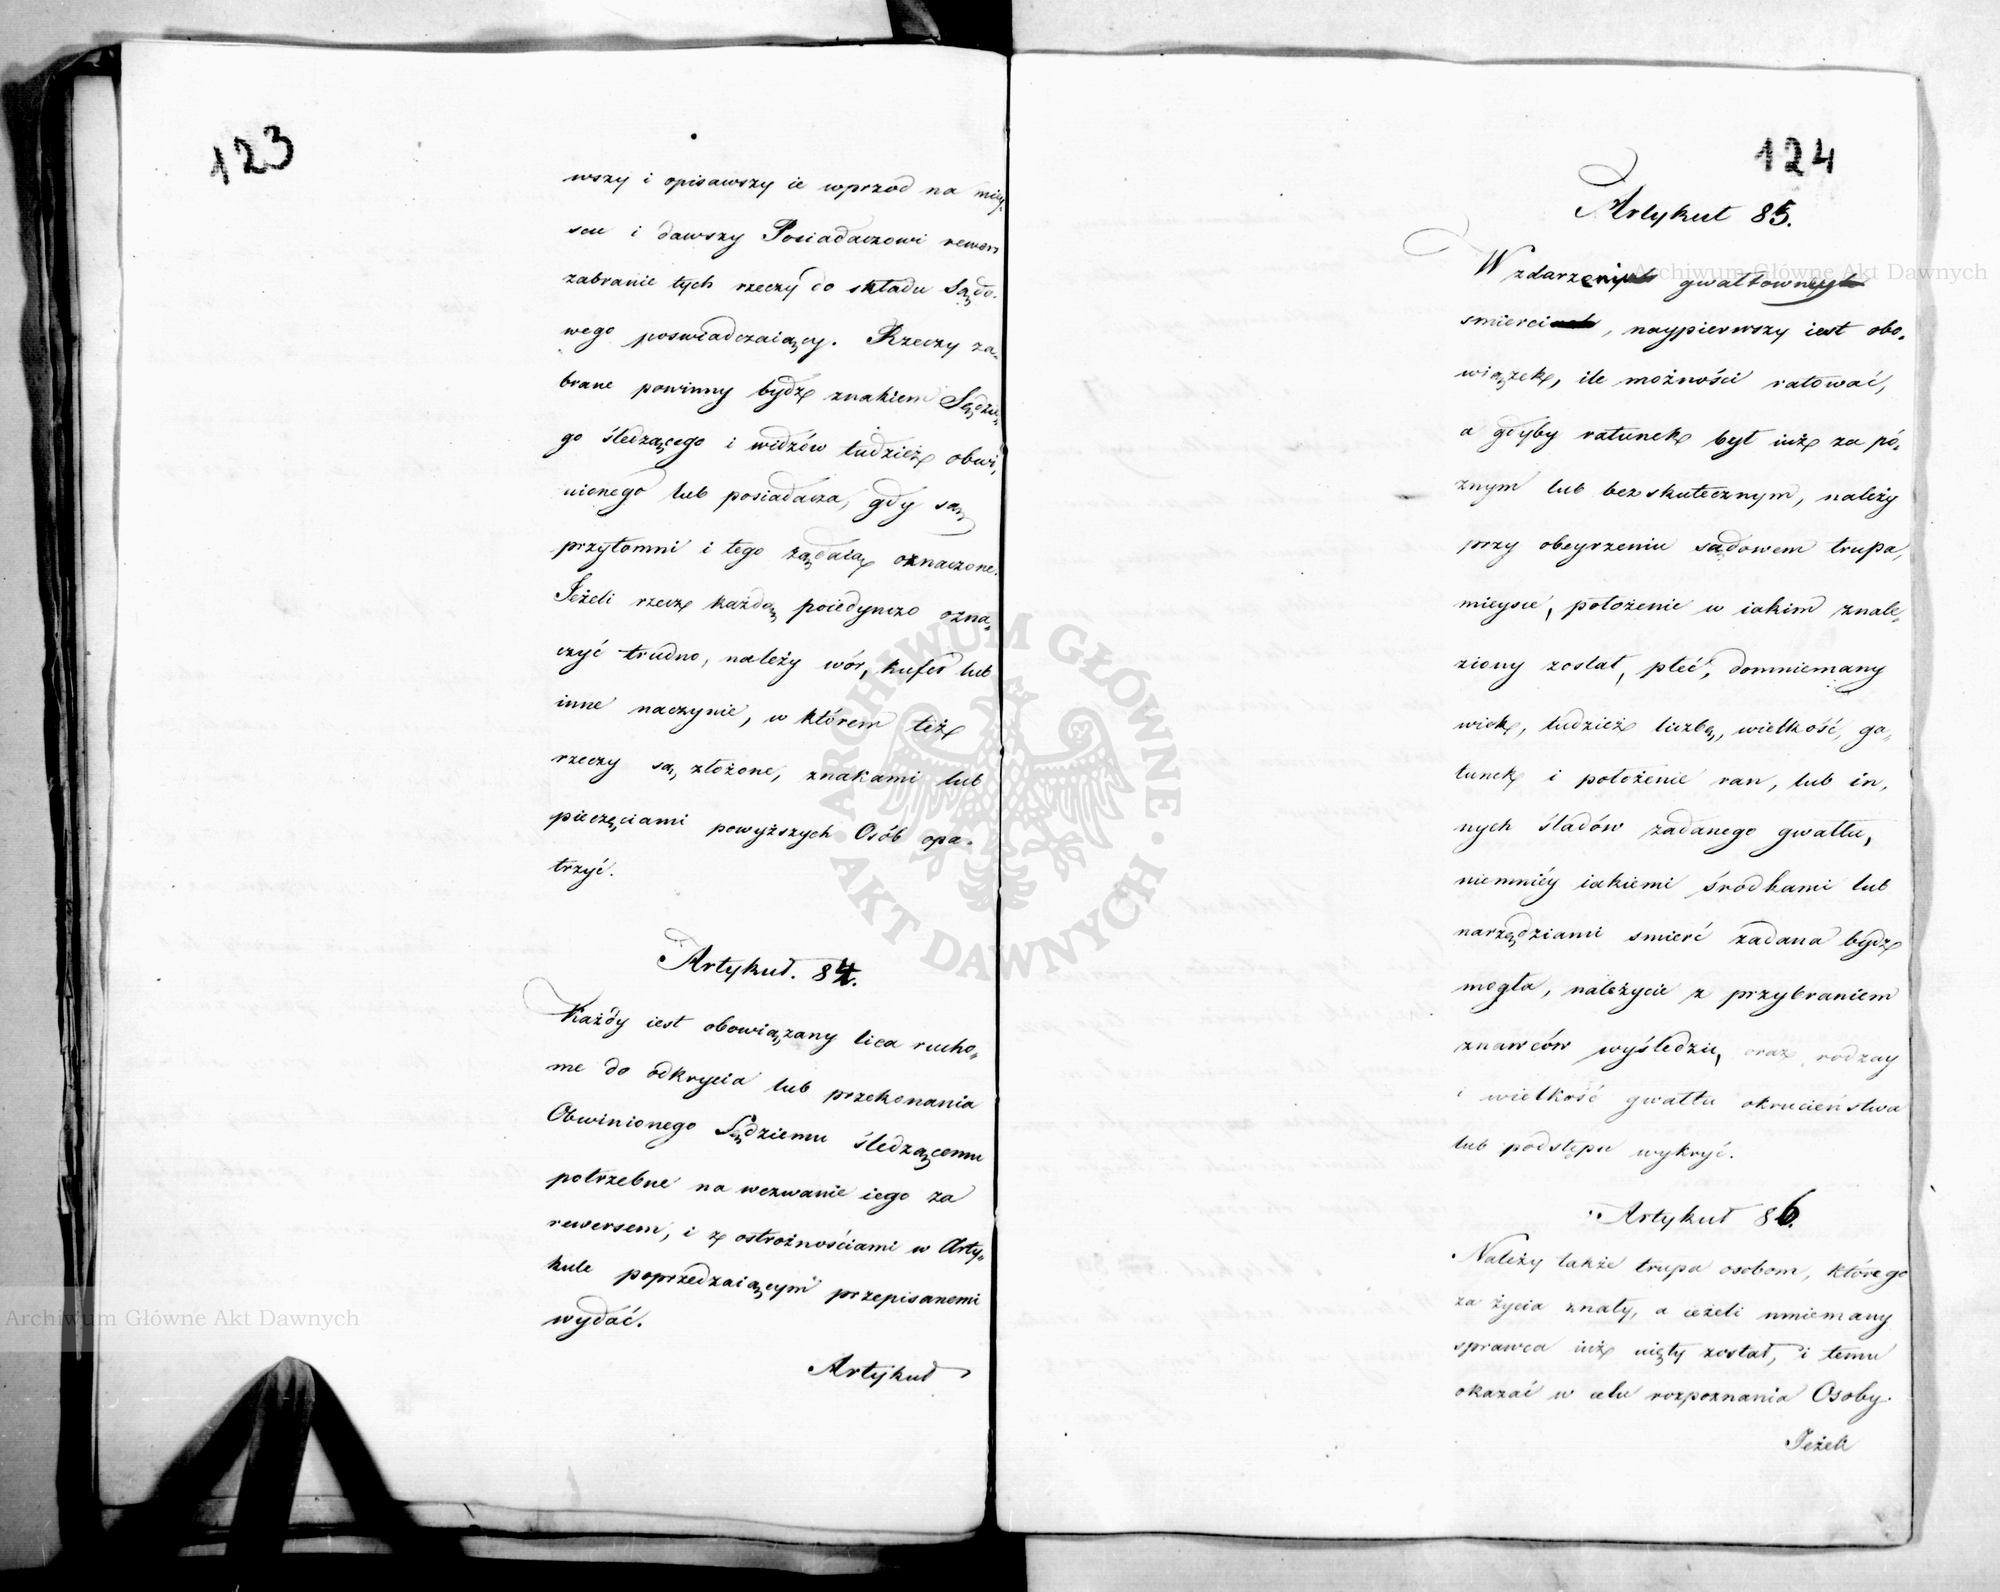 123
wszy i opisawszy ie wprzód na miey-
scu i dawszy Posiadaczowi rewers
zabranie tych rzeczy do składu Sądo-
wego poswiadczaiący. Rzeczy za-
brane powinny bydź znakiem Sędzie-
go śledzącego i widzów tudzież obwi-
nionego lub posiadacza, gdy są
przytomni i tego żądaią oznaczone.
Jeżeli rzecz każdą poiedynczo ozna-
czyć trudno, należy wór, kufer lub
inne naczynie, w którem też
rzeczy są złożone, znakami lub
pieczęciami powyższych Osób opa-
trzyć.
Artykuł. 84.
Każdy iest obowiązany lica rucho-
me do odkrycia lub przekonania
Obwinionego Sędziemu śledzącemu
potrzebne na wezwanie iego za
rewersem, i z ostrożnościami w Arty-
kule poprzedzaiącym przepisanemi
wydać.
Artykuł
124
Artykuł 85.
W zdarzeniu gwałtowney
smierci, naypierwszy iest obo-
wiązek, ile możności ratować,
a gdyby ratunek był iuż za pó-
znym lub bezskutecznym, należy
przy obeyrzeniu sądowem trupa,
mieysce, położenie w iakim znale-
ziony został, płeć, domniemany
wiek, tudzież liczbę, wielkość, ga-
tunek i położenie ran, lub in-
nych śladów zadanego gwałtu,
niemniéy iakiemi środkami lub
narzędziami smierć zadana bydź
mogła, należycie z przybraniem
znawców wyśledzić, oraz rodzay
i wielkość gwałtu okrucieństwa
lub podstępu wykryć.
Artykuł 86.
Należy także trupa osobom, które go
za życia znały, a ieżeli mniemany
sprawca iuż uięty został, i temu
okazać w celu rozpoznania Osoby.
Jeżeli
ARCHIWUM GŁÓWNE · AKT DAWNYCH ·
Archiwum Główne Akt Dawnych
Archiwum Główne Akt Dawnych